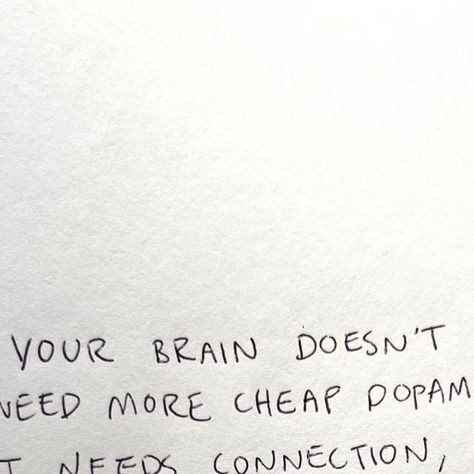 YOUR BRAIN DOESN'T
NEED MORE CHEAP DOPAM
T NEEDS CONNECTION,